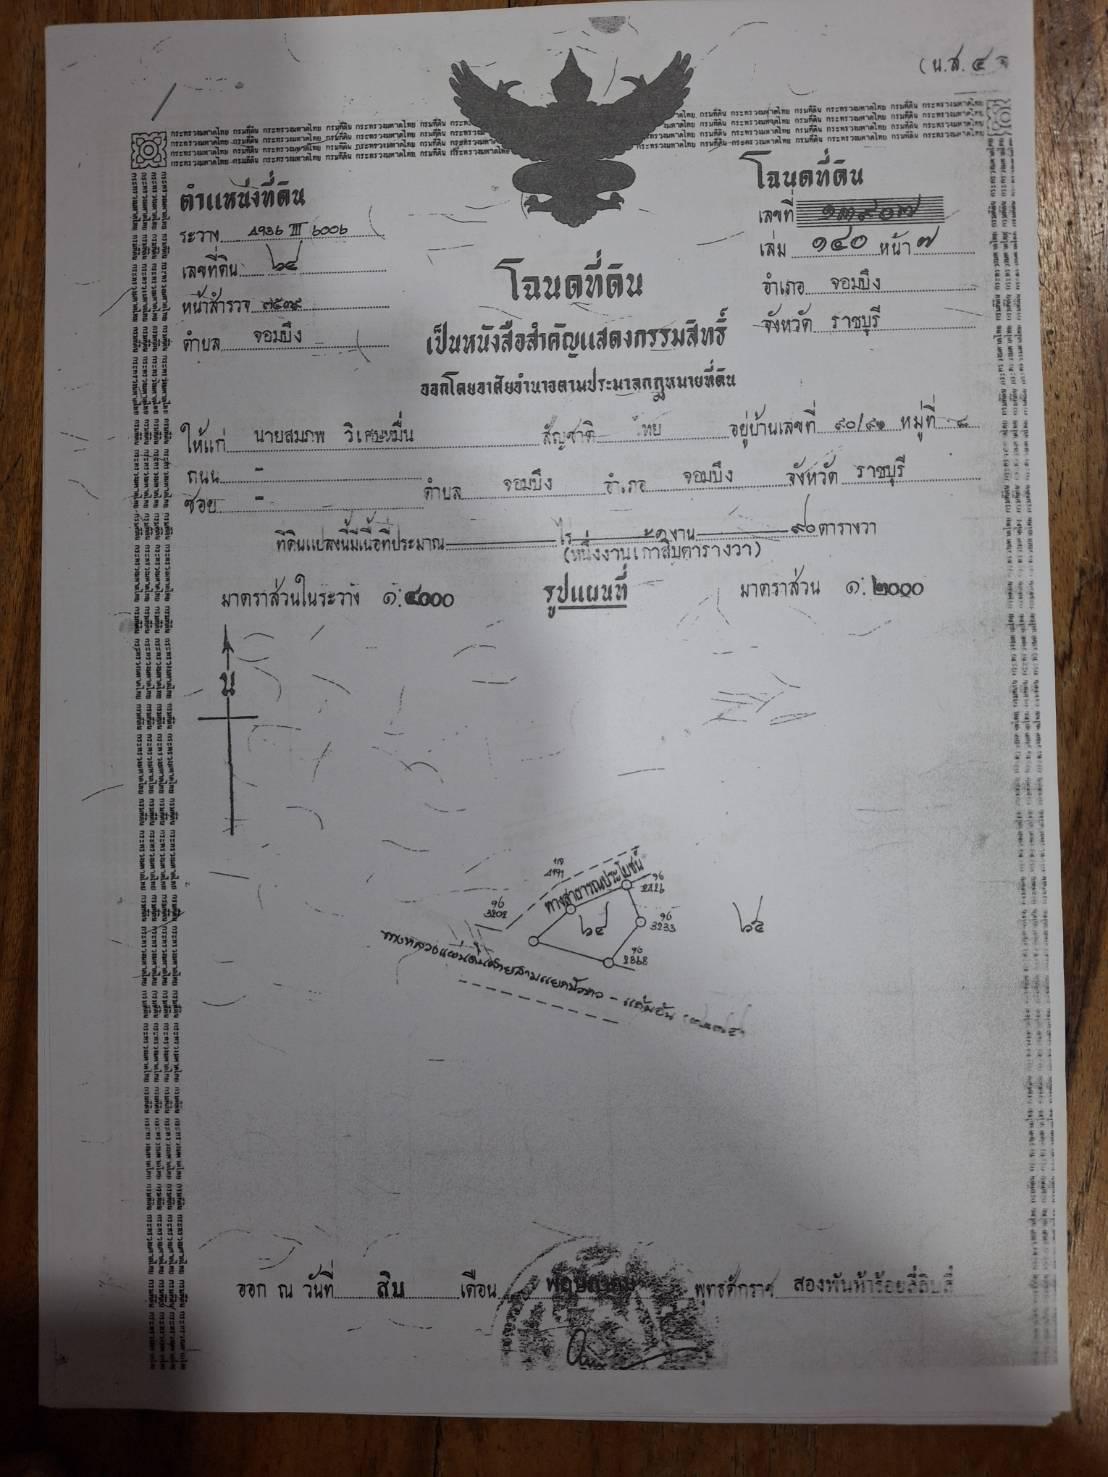 (น.ส. ๔
ตำแหน่งที่ดิน
ระวาง 4936 III 6006
เลขที่ดิน ๖๔
หน้าสำรวจ ๓๕๓๙
ตำบล จอมบึง
โฉนดที่ดิน
เลขที่ ๑๓๙๐๗
เล่ม ๑๔๐ หน้า ๗
อำเภอ จอมบึง
จังหวัด ราชบุรี
โฉนดที่ดิน
เป็นหนังสือสำคัญแสดงกรรมสิทธิ์
ออกโดยอาศัยอำนาจตามประมวลกฎหมายที่ดิน
ให้แก่ นายสมภพ วิเศษหมื่น สัญชาติ ไทย อยู่บ้านเลขที่ ๙๐/๙๑ หมู่ที่ ๘
ถนน -
ซอย - ตำบล จอมบึง อำเภอ จอมบึง จังหวัด ราชบุรี
ที่ดินแปลงนี้มีเนื้อที่ประมาณ ไร่ ๑ งาน ๙๐ ตารางวา
(หนึ่งงานเก้าสิบตารางวา)
มาตราส่วนในระวาง ๑:๔๐๐๐ รูปแผนที่ มาตราส่วน ๑:๒๐๐๐
น
ทางสาธารณประโยชน์
96
3202
96
96
3233
96
2368
๖๔
๖๔
ทางหลวงแผ่นดินสาย
ออก ณ วันที่ สิบ เดือน พฤษภาคม พุทธศักราช สองพันห้าร้อยสี่สิบสี่